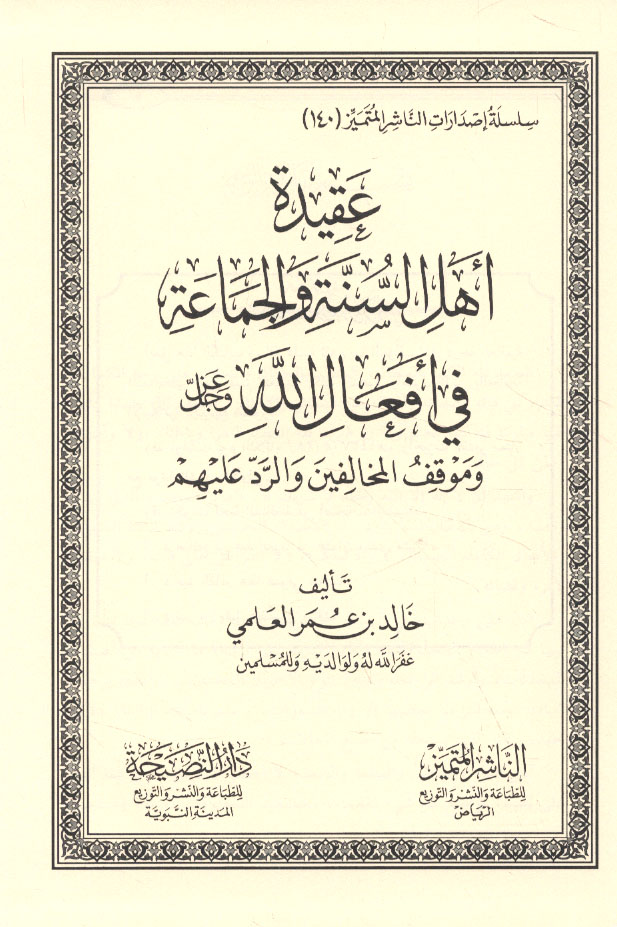 سِلسِلَةُ إصْدَارَاتِ النَّاشِرِ المُتَمَيِّز (١٤٠)
عَقِيدة
أهْلِ السُّنَّةِ وَالجَمَاعَةِ
في أفعَالِ اللَّهِ عَزَّ وَجَلَّ
وَمَوْقِفُ المخالِفِينَ وَالرَّدّ عَليْهِمْ
تَأليف
خَالِد بن عُمَر العَلمي
غفَرَ اللَّه لهُ ولوَالديْهِ وَللمُسْلمين
النَّاشِر المُتَمَيِّز
للطِّبَاعَة وَالنَّشْر وَالتَّوْزيع
الرِّيَاض
دَارُ النَّصِيحَة
للطِّبَاعَة وَالنَّشْر وَالتَّوْزيع
المَدينَة النَّبَويَّة